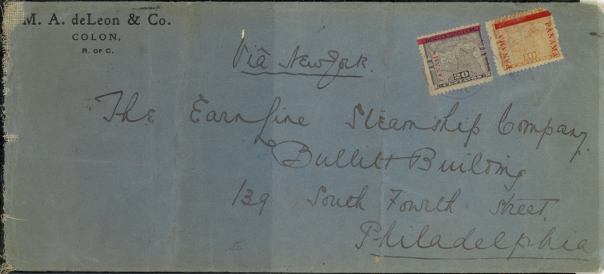 M. A. deLeon & Co.
COLON,
R. OF C.
Via New York.
PANAMA
PANAMA
20
The Earn Line Steamship Company,
Bullitt Building
139 South Fourth Street,
Philadelphia